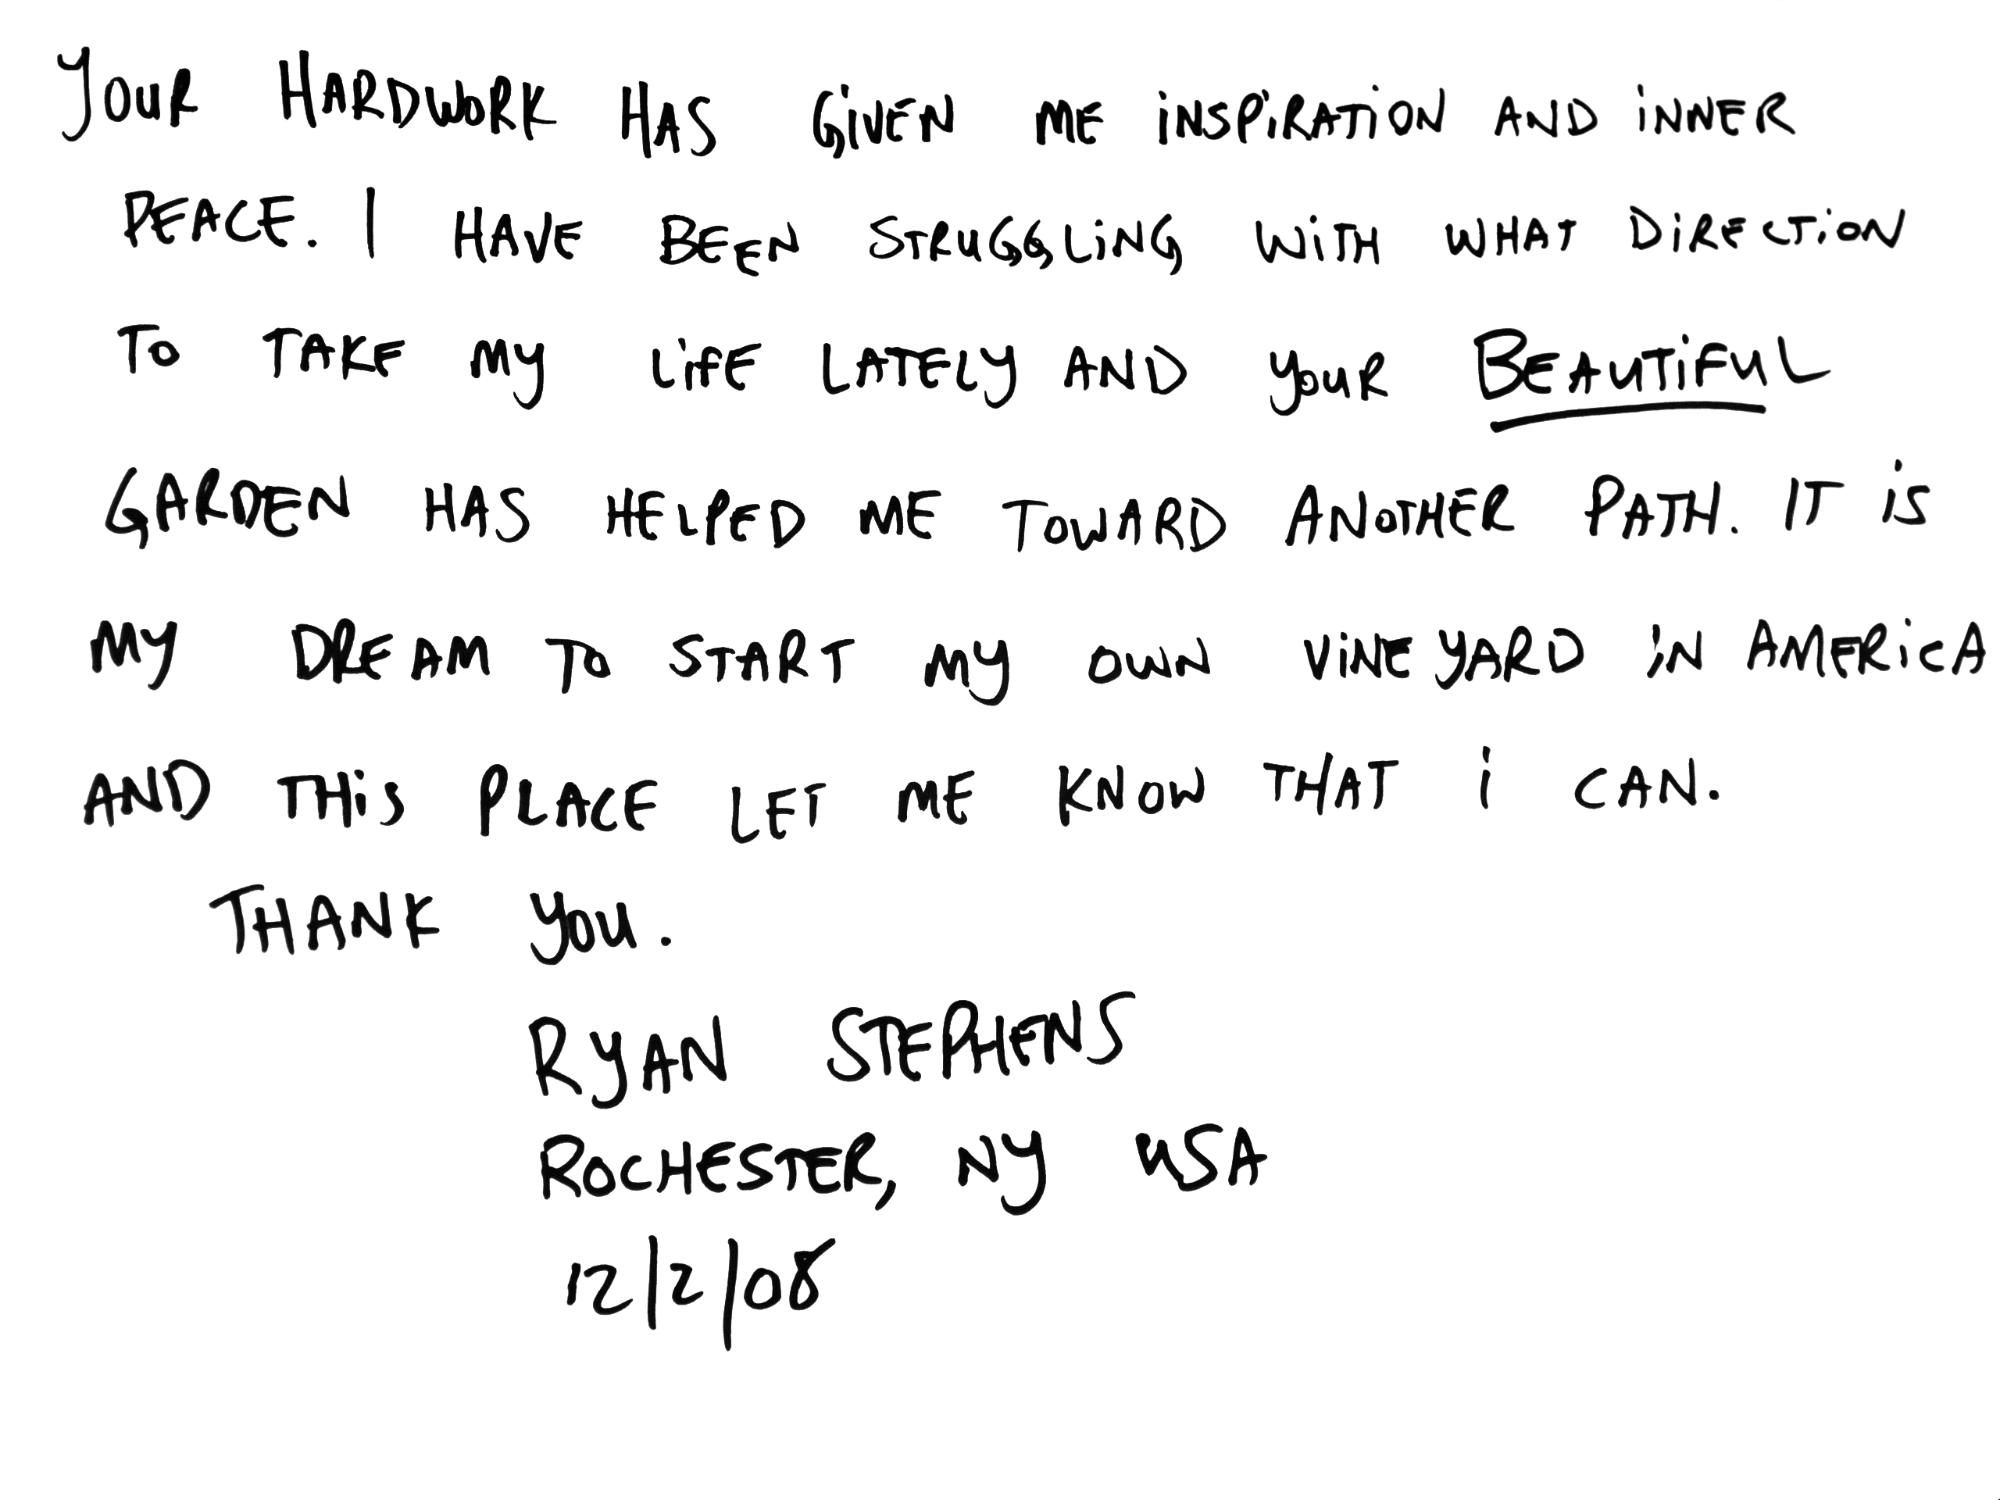 YOUR HARDWORK HAS GIVEN ME INSPIRATION AND INNER
PEACE. I HAVE BEEN STRUGGLING WITH WHAT DIRECTION
TO TAKE MY LIFE LATELY AND YOUR BEAUTIFUL
GARDEN HAS HELPED ME TOWARD ANOTHER PATH. IT IS
MY DREAM TO START MY OWN VINEYARD IN AMERICA
AND THIS PLACE LET ME KNOW THAT I CAN.
THANK YOU.
RYAN STEPHENS
ROCHESTER, NY USA
12/2/08